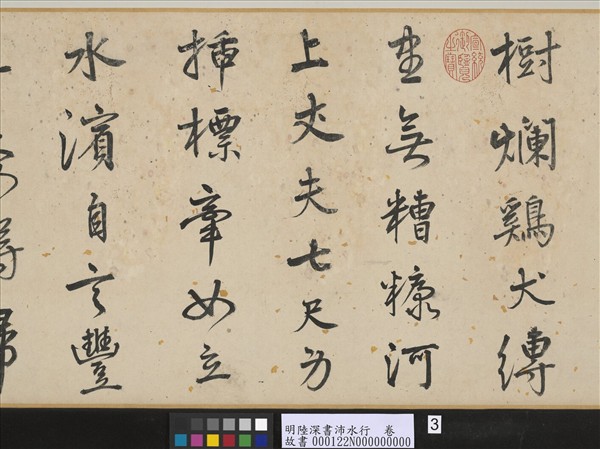 樹爛鷄犬縛
盡無糟糠河
上丈夫七尺身
插標牽女立
水濱自言豐
宣統御覽之寶
明陸深書沛水行 卷
故書 000122N000000000
3